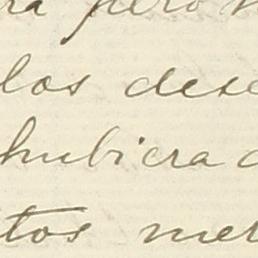 ra pero n
los dese
hubiera a
tos met